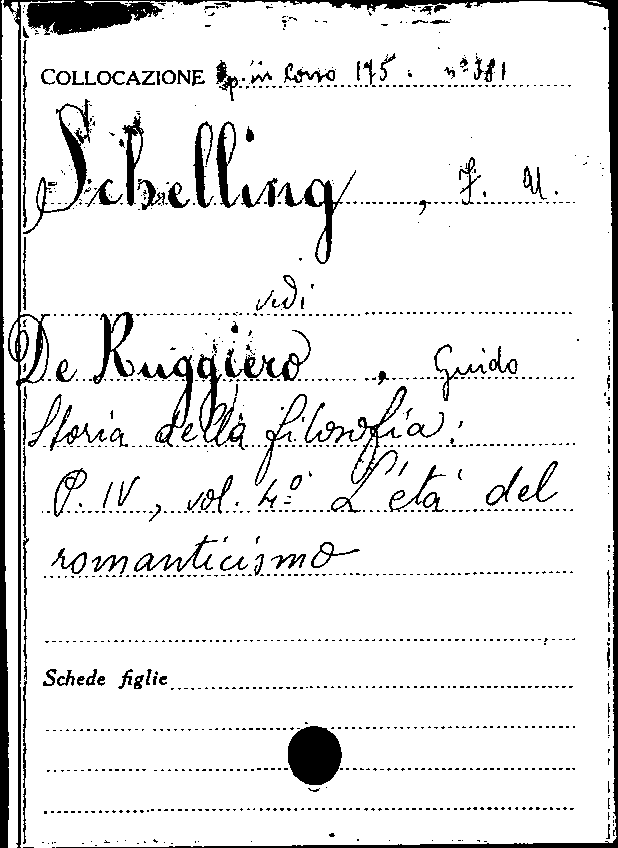 COLLOCAZIONE Op. in Corso 175. nº 381
Schelling, F. W.
vedi
De Ruggiero, Guido
Storia della filosofia:
P. IV, vol. 4º L'età del
romanticismo
Schede figlie